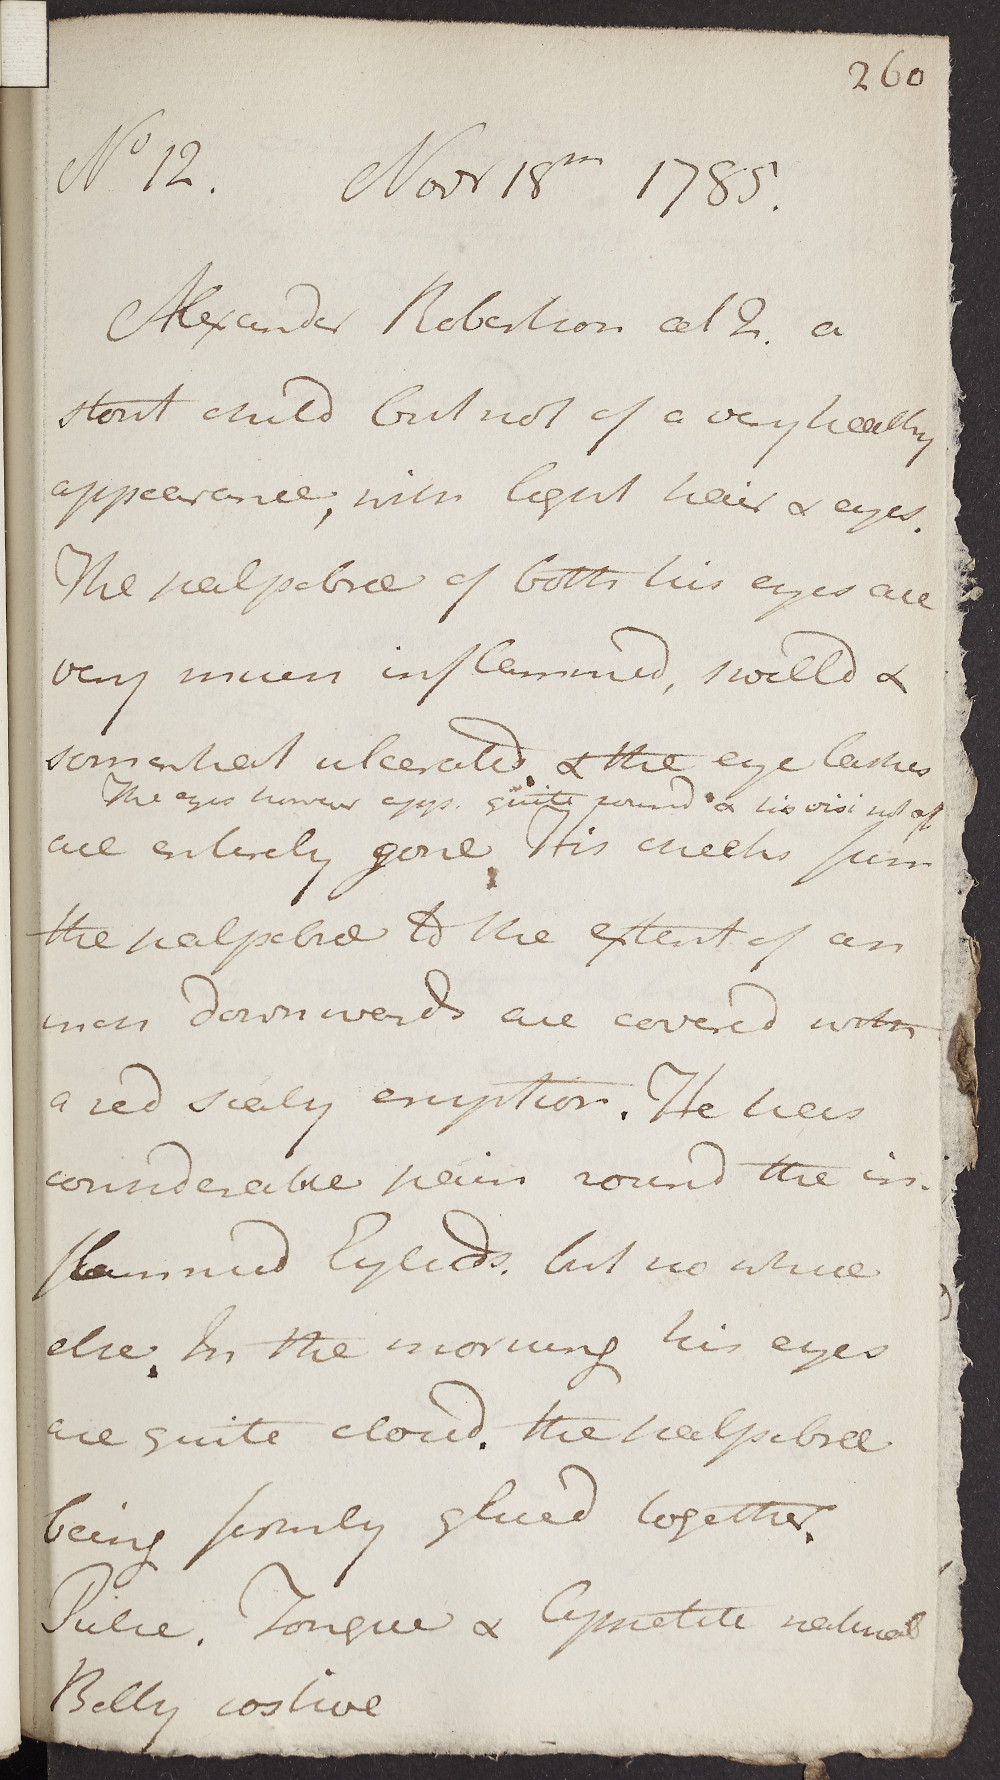 260
No 12. Novr 18th 1785.
Alexander Robertson aet 2. a
stout child but not of a very healthy
appearance, with light hair & eyes.
The palpebrae of both his eyes are
very much inflammed, swelld &
somewhat ulcerated. & the eye lashes
The eyes however app. quite sound & his visi not aff
are entirely gone. His cheeks from
the palpebrae to the extent of an
inch downwards are covered with
a red scaly eruption. He has
considerable pain round the in-
flammed Eyelids. but no where
else. In the morning his eyes
are quite closed. the palpebrae
being firmly glued together.
Pulse. Tongue & Appetite natural
Belly costive